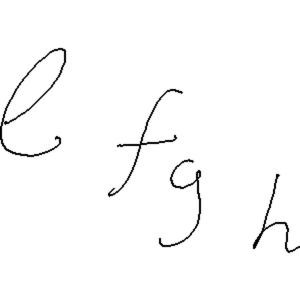 l f g h